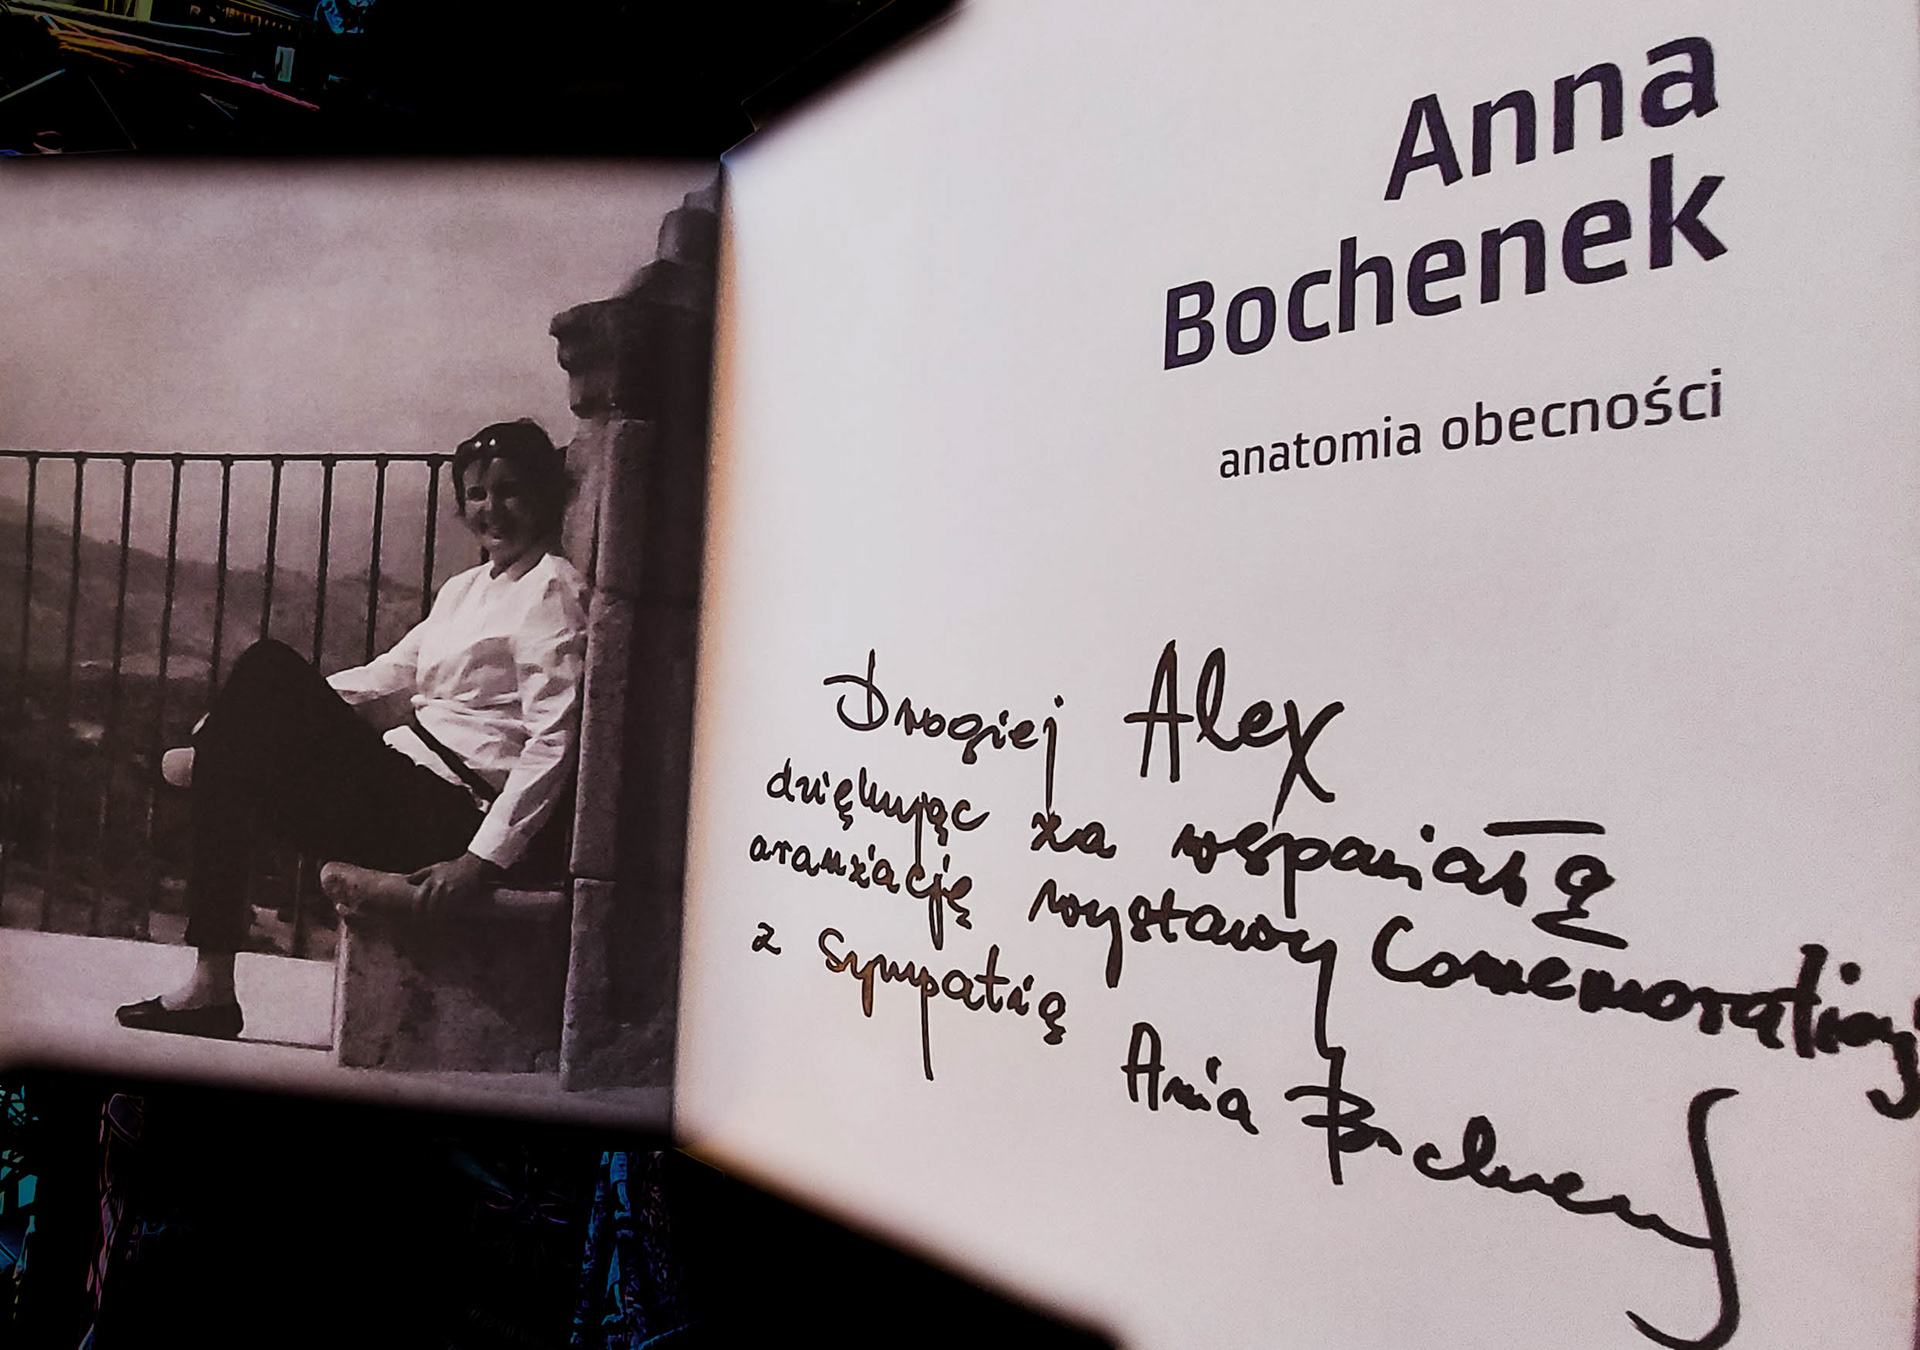 Anna
Bochenek
anatomia obecności
Drogiej Alex
dziękując za wspaniałą
aranżację wystawy Comemorationy
z sympatią
Ania Bochenek